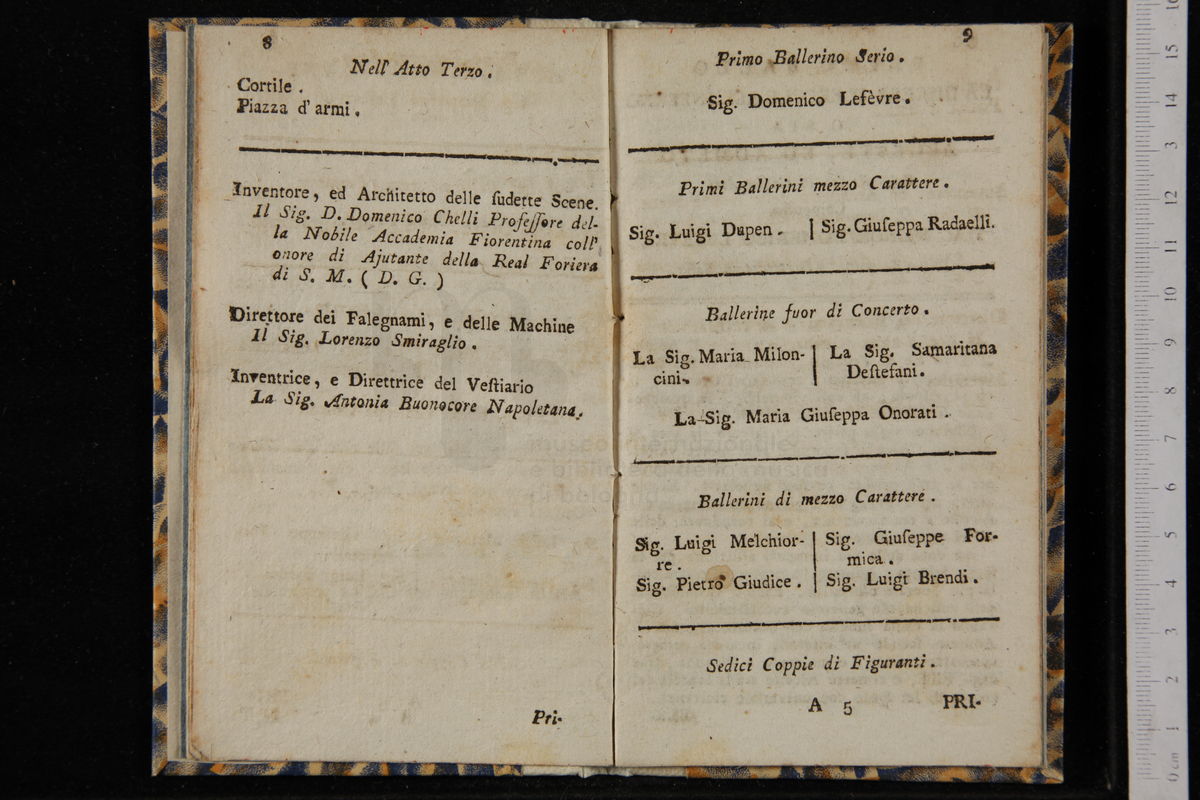 8
Nell' Atto Terzo.
Cortile.
Piazza d' armi.
Inventore, ed Architetto delle ſudette Scene.
Il Sig. D. Domenico Chelli Profeſſore del-
la Nobile Accademia Fiorentina coll'
onore di Ajutante della Real Foriera
di S. M. ( D. G. )
Direttore dei Falegnami, e delle Machine
Il Sig. Lorenzo Smiraglio.
Inventrice, e Direttrice del Veſtiario
La Sig. Antonia Buonocore Napoletana.
Pri-
9
Primo Ballerino Serio.
Sig. Domenico Lefèvre.
Primi Ballerini mezzo Carattere.
Sig. Luigi Dupen. | Sig. Giuſeppa Radaelli.
Ballerine fuor di Concerto.
La Sig. Maria Milon- | La Sig. Samaritana
cini. | Deſtefani.
La Sig. Maria Giuſeppa Onorati.
Ballerini di mezzo Carattere.
Sig. Luigi Melchior- | Sig. Giuſeppe For-
re. | mica.
Sig. Pietro Giudice. | Sig. Luigi Brendi.
Sedici Coppie di Figuranti.
A 5 PRI-
museo internazionale
e biblioteca della musica
di bologna